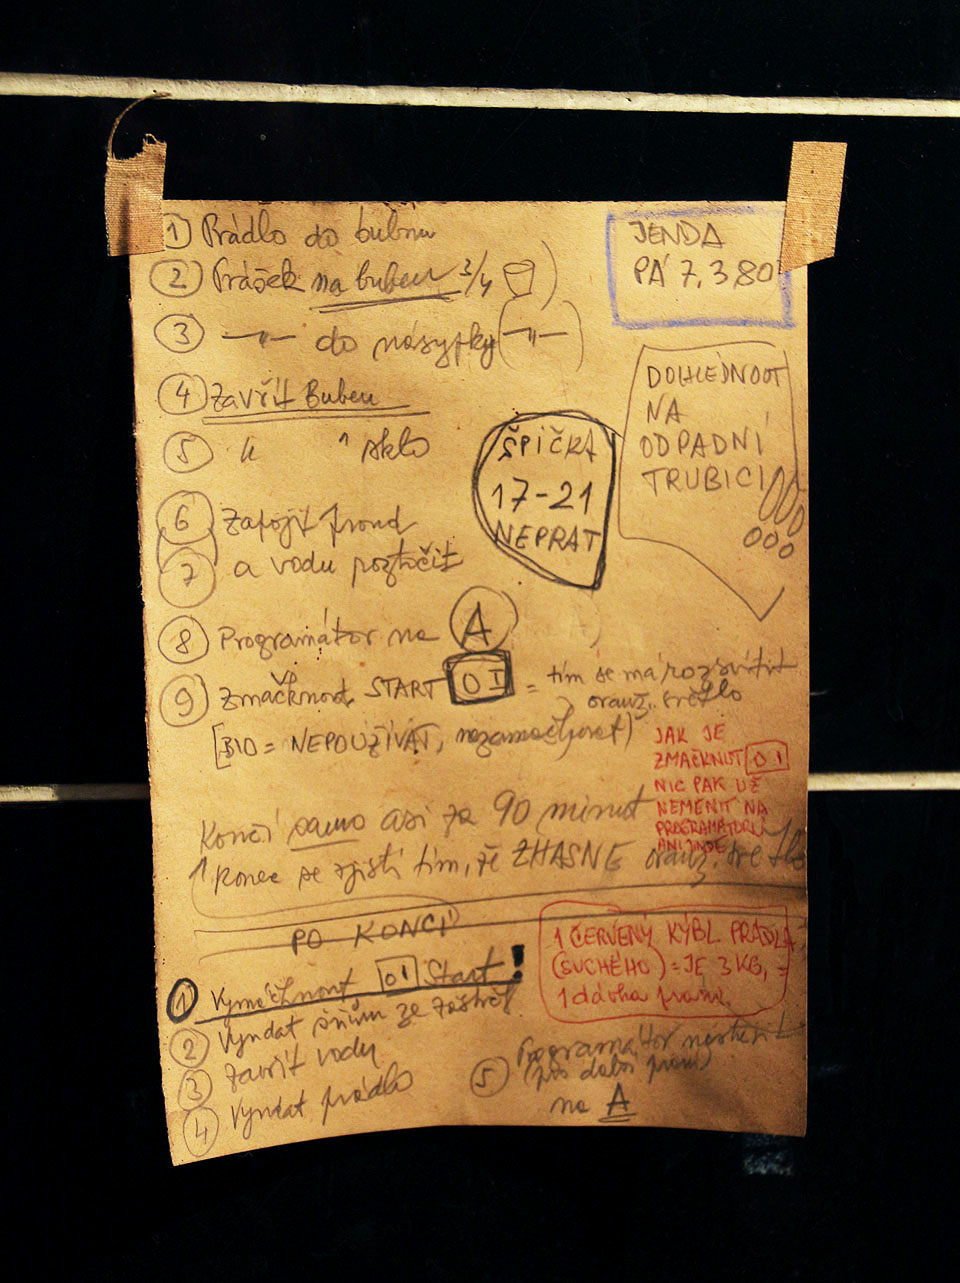 1 Prádlo do bubnu
2 Prášek na buben 3/4
3 —"— do násypky (—"—)
4 Zavřít Buben
5 " sklo
6 Zapojit proud
7 a vodu roztočit
8 Programátor na A
9 Zmáčknout START 0 I = tím se má rozsvítit
oranž. světlo
[BIO = NEPOUŽÍVAT,
Končí samo asi za 90 minut
Konec se zjistí tím, že ZHASNE oranž. světlo
JENDA
PÁ 7.3.80
DOHLÉDNOUT
NA
ODPADNÍ
TRUBICI!!!
ŠPIČKA
17-21
NEPRAT
JAK JE
ZMÁČKNUT 0 I
NIC PAK UŽ
NEMĚNIT NA
PROGRAMÁTORU
ANI JINDE
PO KONCI
1 Vymáčknout 0 I Start!
2 Vyndat šňůru ze zástrč
3 Zavřít vodu
4 Vyndat prádlo
5 Programátor
(při další praní)
na A
1 ČERVENÝ KÝBL PRÁDLA
(SUCHÉHO) = JE 3 KG, =
1 dávka praní.